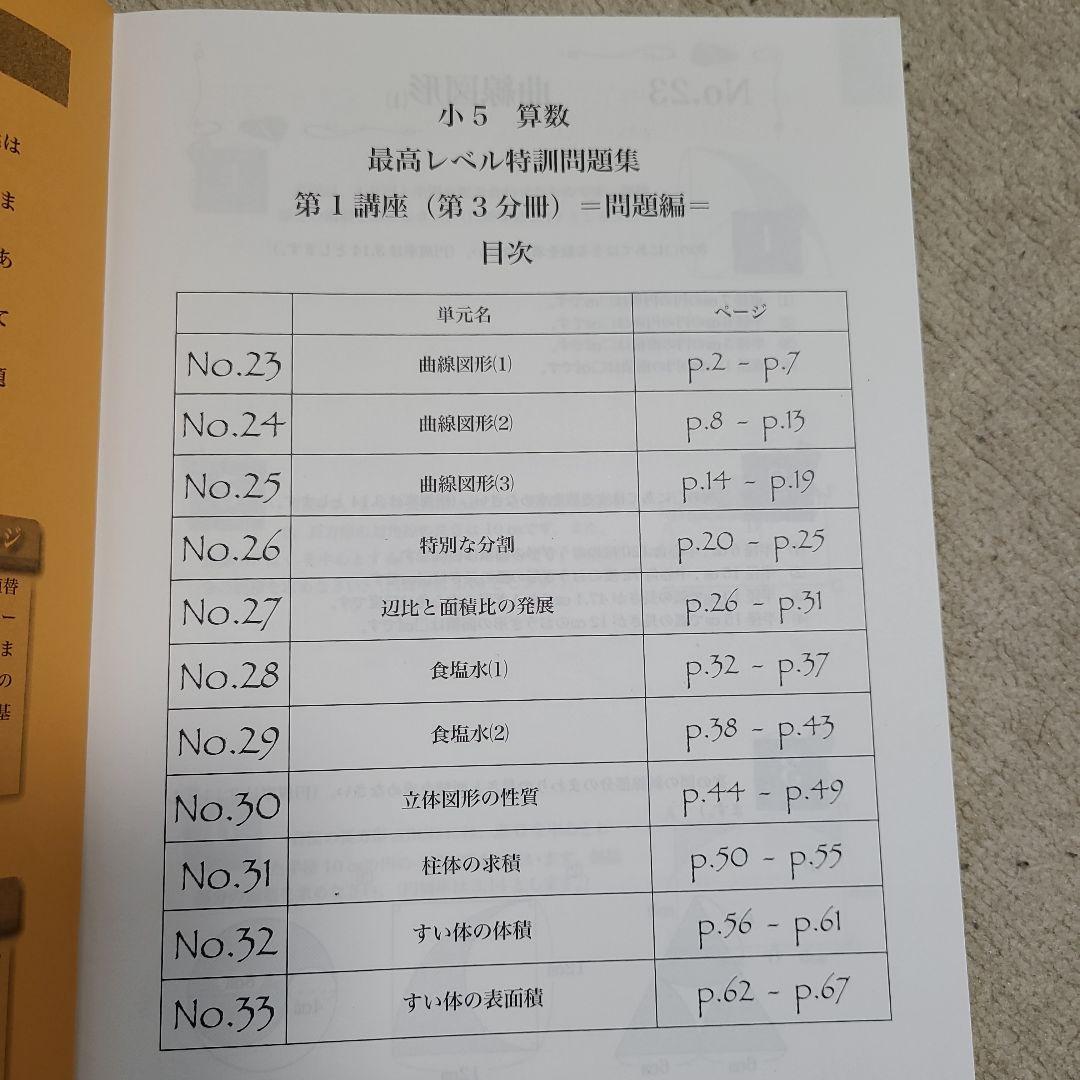 小５　算数
最高レベル特訓問題集
第１講座（第３分冊）＝問題編＝
目次
単元名 ページ
No.23 曲線図形(1) p.2 - p.7
No.24 曲線図形(2) p.8 - p.13
No.25 曲線図形(3) p.14 - p.19
No.26 特別な分割 p.20 - p.25
No.27 辺比と面積比の発展 p.26 - p.31
No.28 食塩水(1) p.32 - p.37
No.29 食塩水(2) p.38 - p.43
No.30 立体図形の性質 p.44 - p.49
No.31 柱体の求積 p.50 - p.55
No.32 すい体の体積 p.56 - p.61
No.33 すい体の表面積 p.62 - p.67